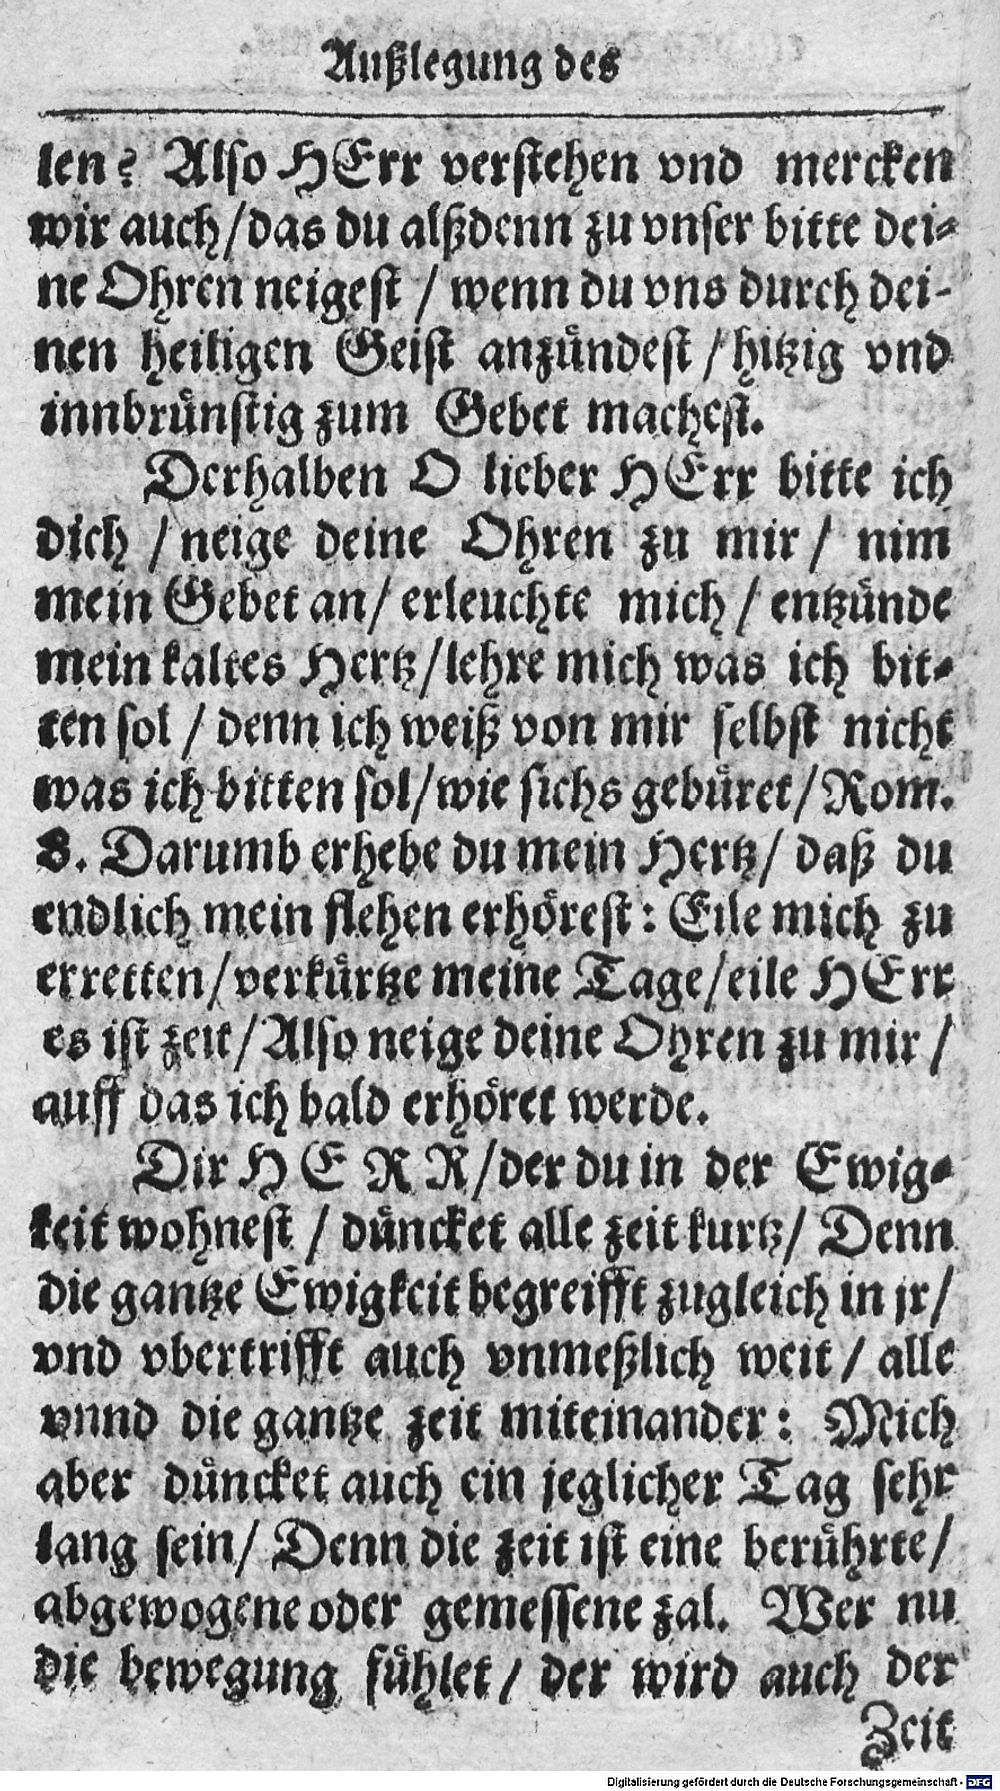 Außlegung des
len? Also HErr verstehen vnd mercken
wir auch/das du alßdenn zu vnser bitte dei-
ne Ohren neigest / wenn du vns durch dei-
nen heiligen Geist anzündest / hitzig vnd
innbrünstig zum Gebet machest.
Derhalben O lieber HErr bitte ich
dich / neige deine Ohren zu mir / nim
mein Gebet an/ erleuchte mich / entzünde
mein kaltes Hertz/lehre mich was ich bit-
ten sol / denn ich weiß von mir selbst nicht
was ich bitten sol/wie sichs gebüret/Rom.
8. Darumb erhebe du mein Hertz/ daß du
endlich mein flehen erhörest: Eile mich zu
erretten/verkürtze meine Tage/eile HErr
es ist zeit/Also neige deine Ohren zu mir /
auff das ich bald erhöret werde.
Dir HERR/der du in der Ewig-
keit wohnest / düncket alle zeit kurtz/ Denn
die gantze Ewigkeit begreifft zugleich in jr/
vnd vbertrifft auch vnmeßlich weit / alle
vnnd die gantze zeit miteinander: Mich
aber düncket auch ein jeglicher Tag sehr
lang sein/ Denn die zeit ist eine berührte/
abgewogene oder gemessene zal. Wer nu
die bewegung fühlet / der wird auch der
Zeit
Digitalisierung gefördert durch die Deutsche Forschungsgemeinschaft - DFG